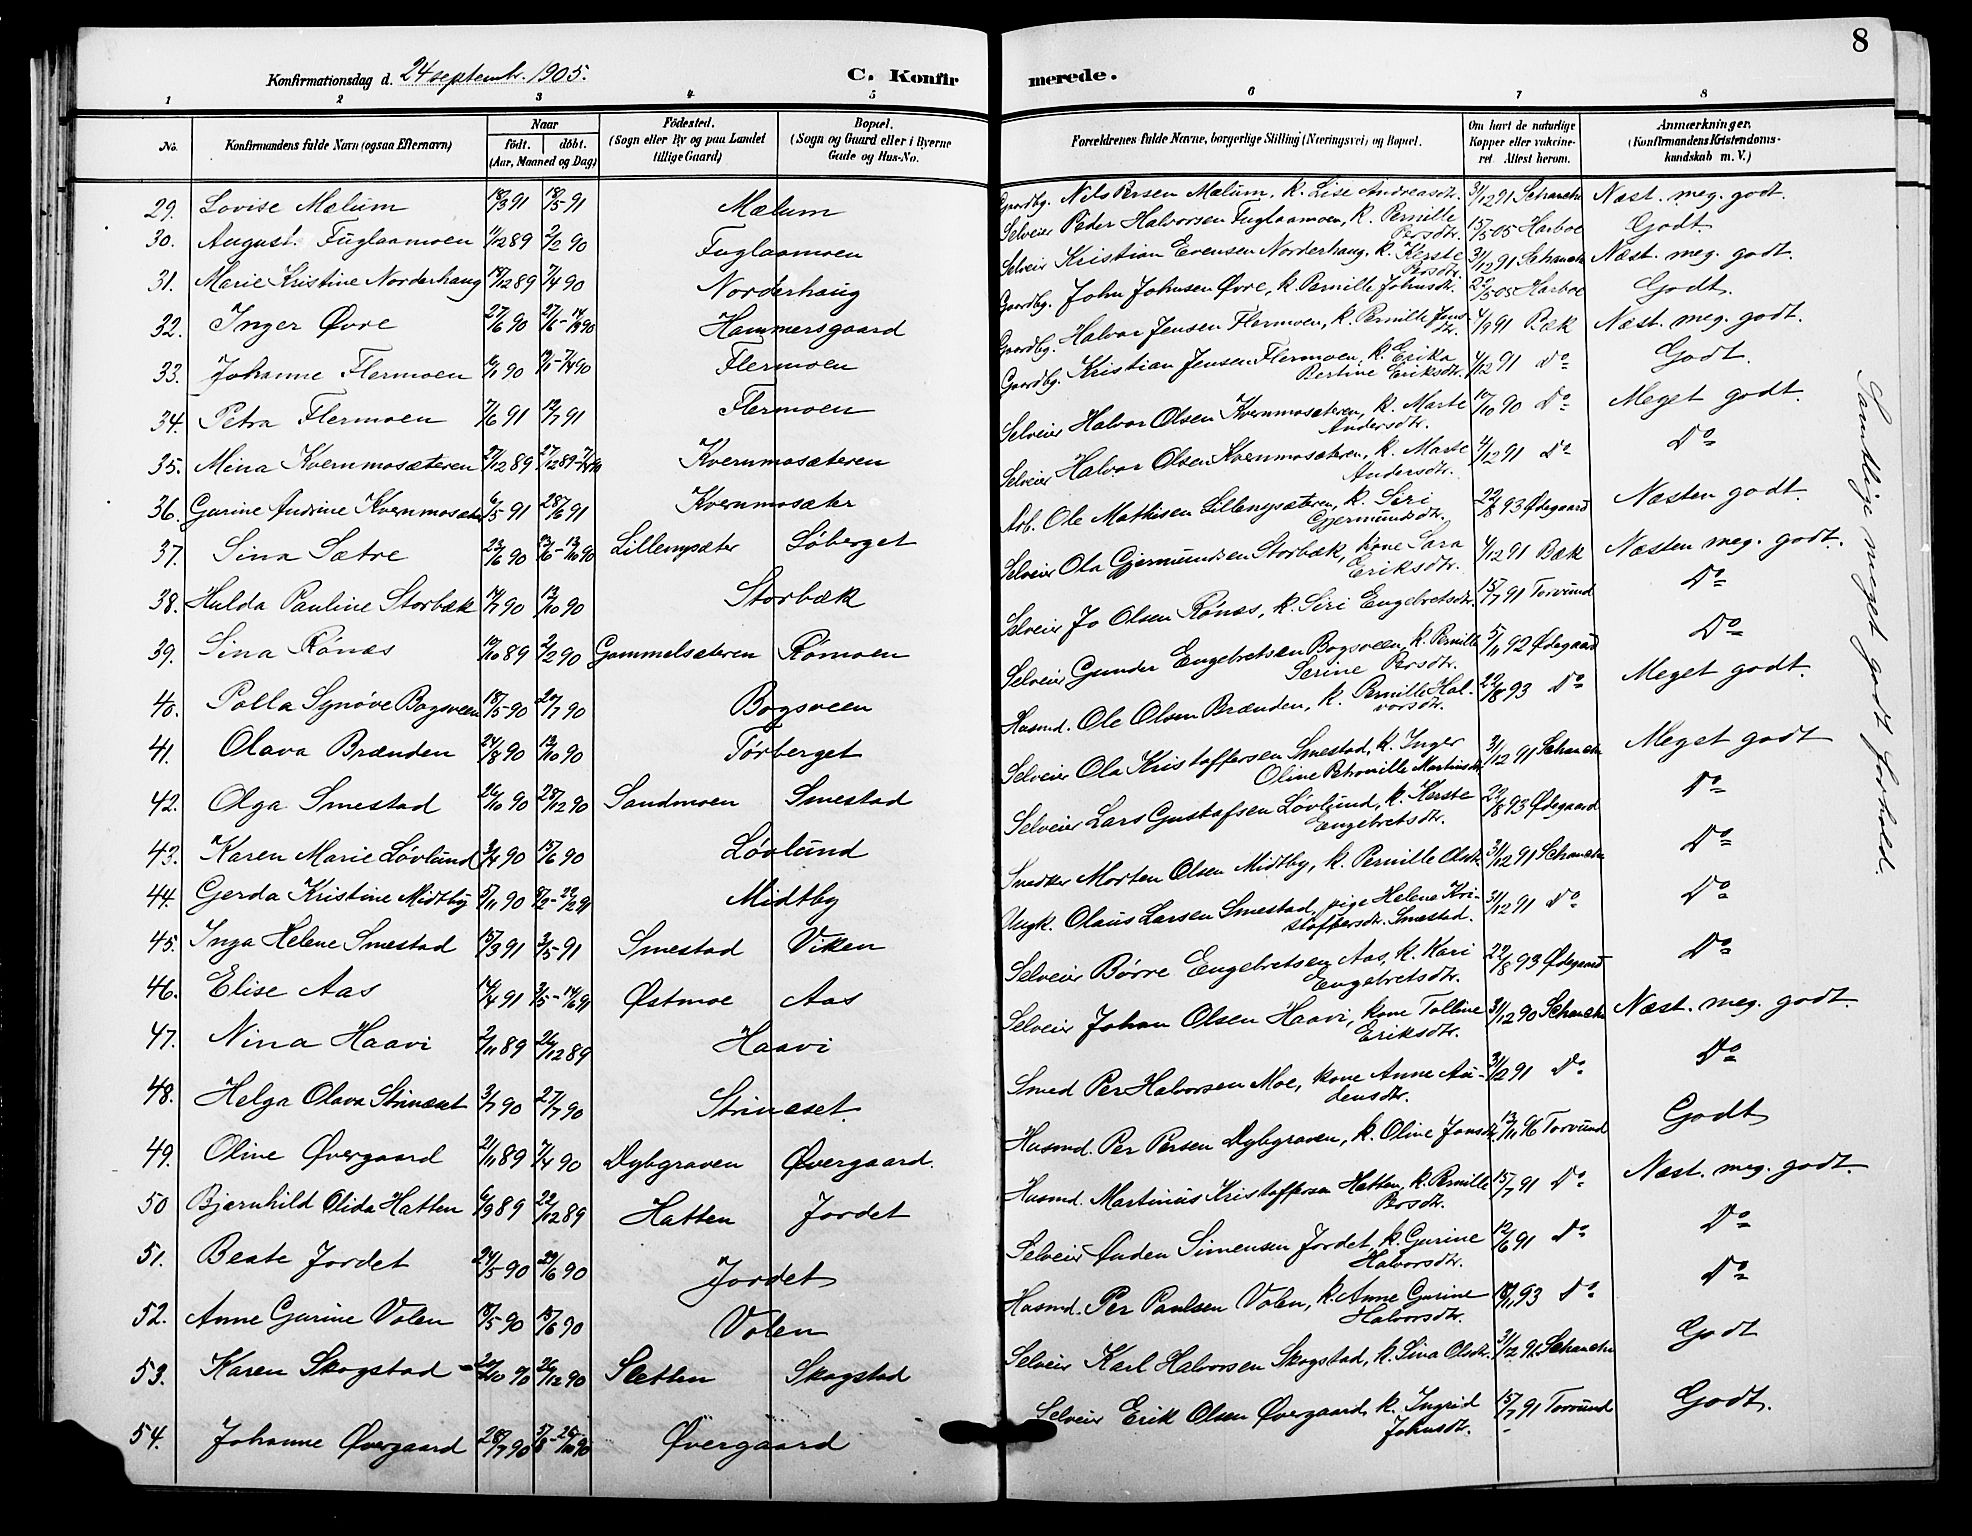 8
Konfirmationsdag d. 24 septembr. 1905.
C. Konfirmerede.
1 2 3 4 5 6 7 8
No.
Konfirmandens fulde Navn (ogsaa Efternavn)
Naar
födt. döbt.
(Aar, Maaned og Dag)
Födested.
(Sogn eller By og paa Landet tillige Gaard)
Bopæl.
(Sogn og Gaard eller i Byerne Gade og Hus-No.
Forældrenes fulde Navne, borgerlige Stilling (Næringsvei) og Bopæl.
Om havt de naturlige Kopper eller vakcineret. Attest herom.
Anmærkninger.
(Konfirmandens Kristendomskundskab m. V.)
29. Lovise Mælum 18/3 91 18/5-91 Mælum Gaardbg. Nils Persen Mælum, k. Lise Andreasdtr. 31/12 91 Schanche Næst. meg. godt.
30. August Fuglaamoen 11/12 89 2/2 90 Fuglaamoen Selveier Peder Halvorsen Fuglaamoen, k. Pernille Persdtr. 15/5 05 Harboe Godt
31. Marie Kristine Norderhaug 18/12 89 7/4 90 Norderhaug Selveier Kristian Evensen Norderhaug, k. Kerste Persdtr. 31/12 91 Schanche Næst. meg. godt.
32. Inger Øvre 27/6 90 Hammersgaard Gaardbg. John Johnsen Øvre, k. Pernille Johnsdtr. 22/5 05 Harboe Godt.
33. Johanne Flermoen Flermoen Gaardbg. Halvor Jensen Flermoen, k. Pernille Jensdtr. 4/9 91 Bæk Næst. meg. godt.
34. Petra Flermoen 7/6 91 12/7 91 Flermoen Gaardbg. Kristian Jensen Flermoen, k. Erika Bertine Eriksdtr. 4/12 91 Do Godt.
35. Mina Kvernmosæteren 27/12 89 Kvernmosæteren Selveier Halvor Olsen Kvernmosæteren, k. Marte Andersdtr. 10/10 90 Do Meget godt.
36. Gurine Andrine Kvernmosæter 6/5 91 28/6 91 Kvernmosæter Selveier Halvor Olsen Kvernmosæteren, k. Marte Andersdtr. 4/12 91 Do Do
37. Sina Sætre 23/6 90 Lillemysæter Løberget Arb. Ole Mathisen Lillemysæteren, k. Siri Gjermundsdtr. 22/8 93 Ødegaard Næsten godt.
38. Hulda Pauline Storbæk 14/7 90 12/10 90 Storbæk Selveier Ola Gjermundsen Storbæk, kone Sara Eriksdtr. 4/12 91 Bæk Næsten meg. godt.
39. Sina Rönæs 10/10 89 2/2 90 Gammelsæteren Römoen Selveier Jo Olsen Rönæs, k. Siri Engebretsdtr. 15/7 91 Torvund Do
40. Polla Synöve Bogsveen 18/5-90 20/7 90 Bogsveen Selveier Gunder Engebretsen Bogsveen, k. Pernille Serine Persdtr. 5/11 92 Ødegaard Do
41. Olava Brænden 24/8 90 12/10 90 Törberget Husmd. Ole Olsen Brænden, k. Pernille Halvorsdtr. 22/8 93 Do Meget godt.
42. Olga Smestad 26/10 90 28/12 90 Sandmoen Smestad Selveier Ola Kristoffersen Smestad, k. Inger Oline Petronille Martinsdtr. 31/12 91 Schanche Meget godt
43. Karen Marie Lövlund 3/4 90 15/6 90 Lövlund Selveier Lars Gustafsen Lövlund, k. Kerste Engebretsdtr. 22/8 93 Ødegaard Do
44. Gerda Kristine Midtby 5/11 90 Midtby Snedker Morten Olsen Midtby, k. Pernille Olsdtr. 31/12 91 Schanche Do
45. Inga Helene Smestad 15/3 91 3/5-91 Smestad Viken Ungk. Olaus Larsen Smestad, pige Helene Kristoffersdtr. Smestad. 31/12 91 Do Do
46. Elise Aas 14/4 91 3/5-14/6 91 Østmoe Aas Selveier Börre Engebretsen Aas, k. Kari Engebretsdtr. 22/8 93 Ødegaard Do
47. Nina Haavi 2/11 89 26/12 89 Haavi Selveier Johan Olsen Haavi, kone Tolline Eriksdtr. 31/12 90 Schanche Næst. meg. godt.
48. Helga Olava Strinæset 3/7 90 27/7 90 Strinæset Smed Per Halvorsen Moe, kone Anne Audensdtr. 31/12 91 Do Do
49. Oline Øvergaard 21/11 89 7/4 90 Dybgraven Øvergaard. Husmd. Per Persen Dybgraven, k. Oline Jonsdtr. 13/11 96 Torvund Godt
50 Bjærnhild Olida Hatten 6/9 89 22/12 89 Hatten Jordet Husmd. Martinius Kristoffersen Hatten, k. Pernille Persdtr. 15/7 91 Do Næst. meg. godt.
51. Beate Jordet 24/5-90 29/6 90 Jordet Selveier Auden Simensen Jordet, k. Gurine Halvorsdtr. 12/6 91 Do Do
52. Anne Gurine Volen 18/5-90 15/6 90 Volen Husmd. Per Paulsen Volen, k. Anne Gurine Halvorsdtr. 18/11 93 Do Do
53. Karen Skogstad 20/10 90 26/12 90 Sletten Skogstad Selveier Karl Halvorsen Skogstad, k. Sina Olsdtr. 31/12 91. Schanche Godt
54. Johanne Øvergaard 28/7 90 Övergaard Selveier Erik Olsen Øvergaard, k. Ingrid Johnsdtr. 15/7 91 Torvund Godt.
Samtlige meget godt forhold.